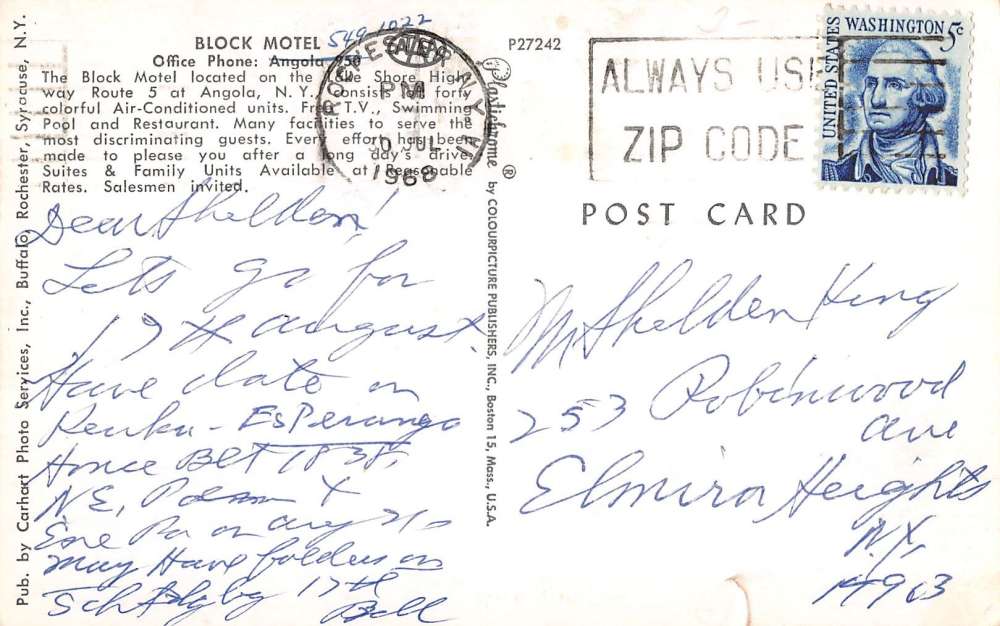 BLOCK MOTEL 549 1022
Office Phone: Angola 750
The Block Motel located on the Lake Shore High-
way Route 5 at Angola, N.Y. consists of forty
colorful Air-Conditioned units. Free T.V., Swimming
Pool and Restaurant. Many facilities to serve the
most discriminating guests. Every effort has been
made to please you after a long day's drive.
Suites & Family Units Available at Reasonable
Rates. Salesmen invited.
Dear Sheldon!
Lets go for
17th August.
Have date on
Keuka - Esperanza
House BLT 1838,
N.E,
Erie Pa on Aug 21
may Have folders on
17th
Bill
Pub. by Carhart Photo Services, Inc., Buffalo, Rochester, Syracuse, N.Y.
P27242
Plastichrome ® by COLOURPICTURE PUBLISHERS, INC., Boston 15, Mass., U.S.A.
ROCHESTER N.Y.
PM
JUL
1968
ALWAYS USE
ZIP CODE
UNITED STATES
WASHINGTON 5c
POST CARD
Mr Shelden King
253 Robinwood
Ave
Elmira Heights
N.Y.
14903